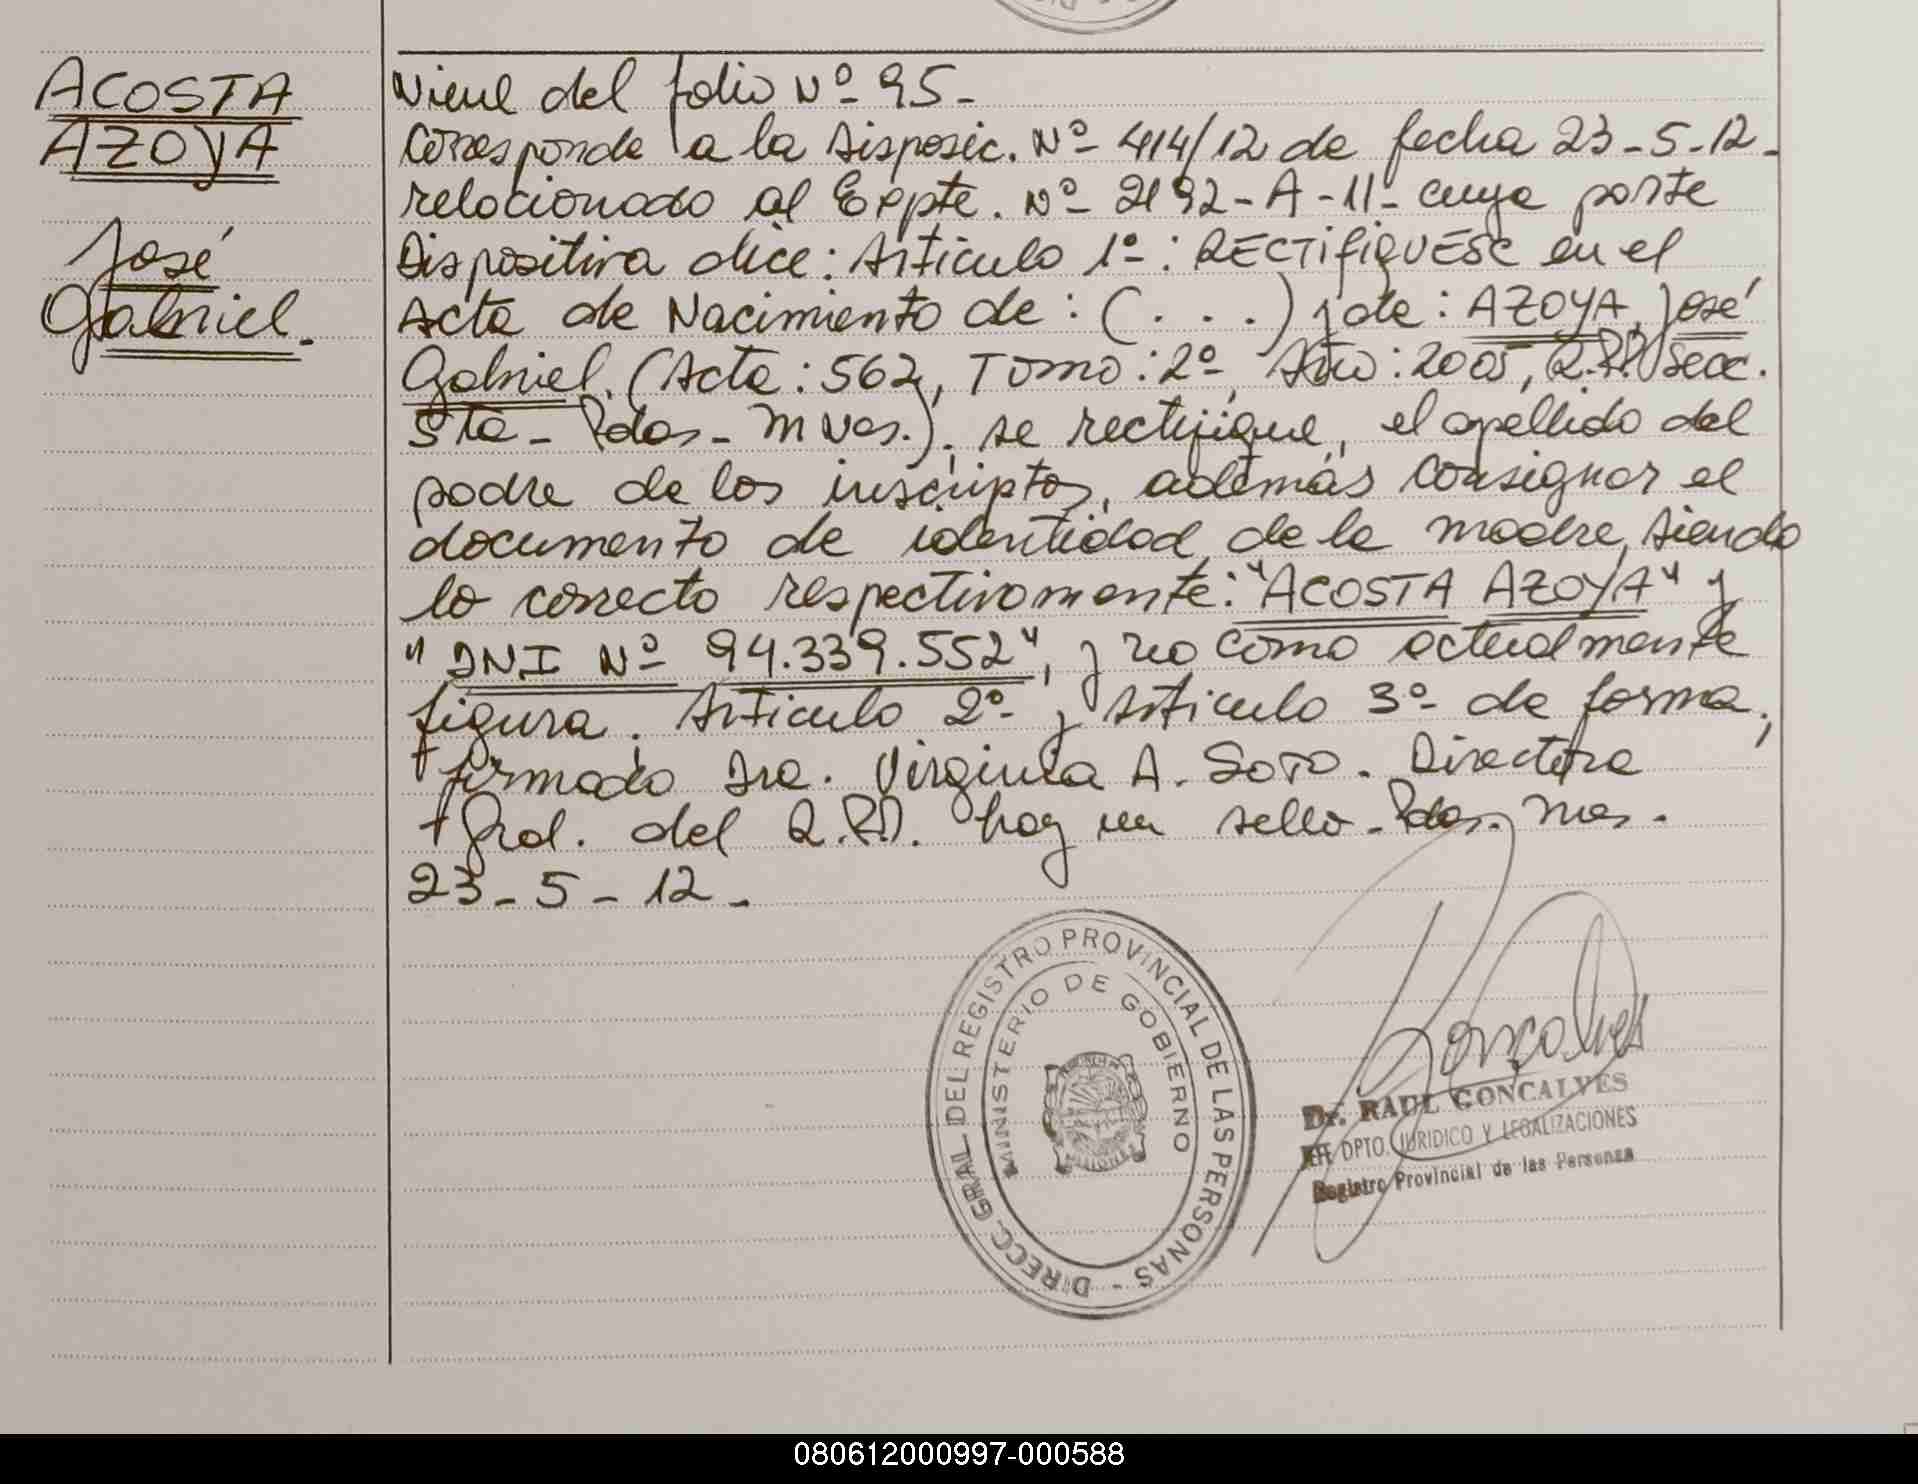 ACOSTA
AZOYA
José
Gabriel.
Viene del folio Nº 95-
Corresponde a la Disposic. Nº 414/12 de fecha 23-5-12-
relacionado al Expte. Nº 2192-A-11- cuya parte
Dispositiva dice: Artículo 1º: RECTIFIQUESE en el
Acta de Nacimiento de: (...) y de: AZOYA, José
Gabriel. (Acta: 562, Tomo: 2º, Año: 2005, R.P.P. Secc.
5ta- Pdas- Mnes.). se rectifique, el apellido del
padre de los inscriptos, además consignar el
documento de identidad de la madre, siendo
lo correcto respectivamente: "ACOSTA AZOYA" y
"DNI Nº 94.339.552", y no como actualmente
figura. Artículo 2º y Artículo 3º de forma,
firmado Dra. Virginia A. Soto. Directora
Gral. del R.P.P. hay un sello- Pdas. Mnes.
23-5-12-
DIRECC. GRAL. DEL REGISTRO PROVINCIAL DE LAS PERSONAS -
MINISTERIO DE GOBIERNO
Goncalves
Dr. RAUL GONCALVES
DPTO. JURIDICO Y LEGALIZACIONES
Registro Provincial de las Personas
080612000997-000588